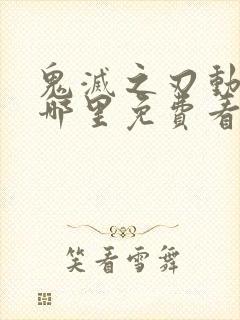 鬼滅之刃動
哪里免費看
笑看雪舞